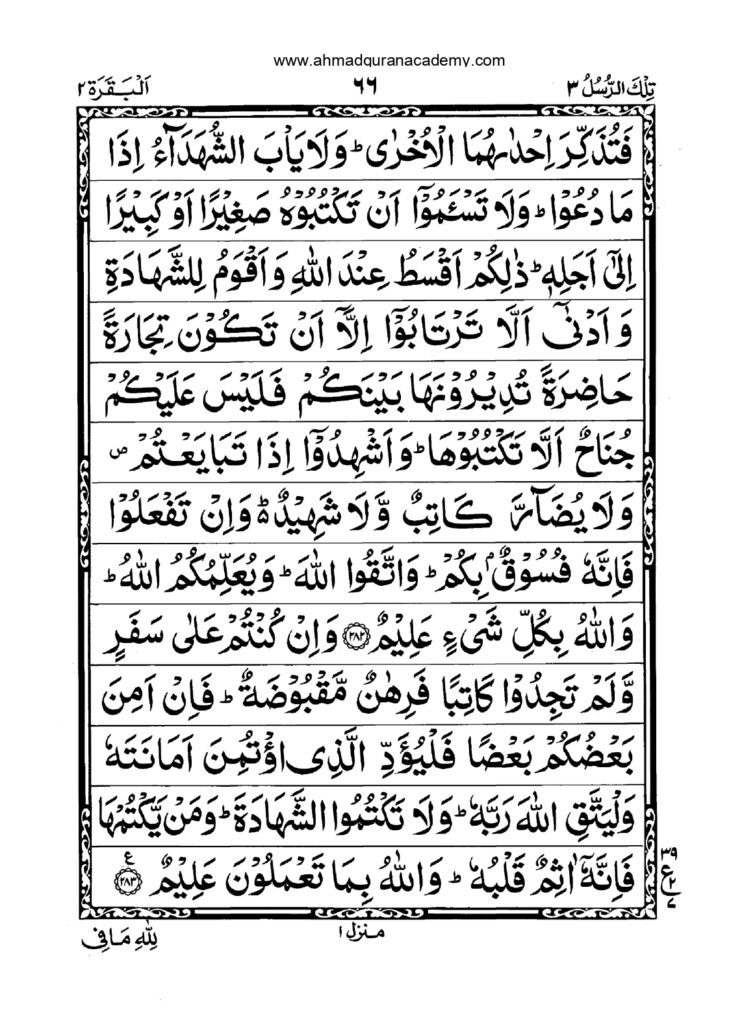 www.ahmadquranacademy.com
تِلْكَ الرُّسُلُ ٣ ٦٦ اَلْبَقَرَة ٢
فَتُذَكِّرَ اِحْدٰىهُمَا الْاُخْرٰى ؕ وَلَا يَاْبَ الشُّهَدَآءُ اِذَا
مَا دُعُوْا ؕ وَلَا تَسْـَٔمُوْۤا اَنْ تَكْتُبُوْهُ صَغِيْرًا اَوْ كَبِيْرًا
اِلٰٓى اَجَلِهٖ ؕ ذٰلِكُمْ اَقْسَطُ عِنْدَ اللّٰهِ وَاَقْوَمُ لِلشَّهَادَةِ
وَاَدْنٰۤى اَلَّا تَرْتَابُوْۤا اِلَّاۤ اَنْ تَكُوْنَ تِجَارَةً
حَاضِرَةً تُدِيْرُوْنَهَا بَيْنَكُمْ فَلَيْسَ عَلَيْكُمْ
جُنَاحٌ اَلَّا تَكْتُبُوْهَا ؕ وَاَشْهِدُوْۤا اِذَا تَبَايَعْتُمْ ۪
وَلَا يُضَآرَّ كَاتِبٌ وَّلَا شَهِيْدٌ ؕ۬ وَاِنْ تَفْعَلُوْا
فَاِنَّهٗ فُسُوْقٌۢ بِكُمْ ؕ وَاتَّقُوا اللّٰهَ ؕ وَيُعَلِّمُكُمُ اللّٰهُ ؕ
وَاللّٰهُ بِكُلِّ شَيْءٍ عَلِيْمٌ ﴿٢٨٢﴾ وَاِنْ كُنْتُمْ عَلٰى سَفَرٍ
وَّلَمْ تَجِدُوْا كَاتِبًا فَرِهٰنٌ مَّقْبُوْضَةٌ ؕ فَاِنْ اَمِنَ
بَعْضُكُمْ بَعْضًا فَلْيُؤَدِّ الَّذِى اؤْتُمِنَ اَمَانَتَهٗ
وَلْيَتَّقِ اللّٰهَ رَبَّهٗ ؕ وَلَا تَكْتُمُوا الشَّهَادَةَ ؕ وَمَنْ يَّكْتُمْهَا
فَاِنَّهٗۤ اٰثِمٌ قَلْبُهٗ ؕ وَاللّٰهُ بِمَا تَعْمَلُوْنَ عَلِيْمٌ ﴿٢٨٣﴾ ع
٣٩
ع
٧
منزل ١
لِلّٰهِ مَا فِى